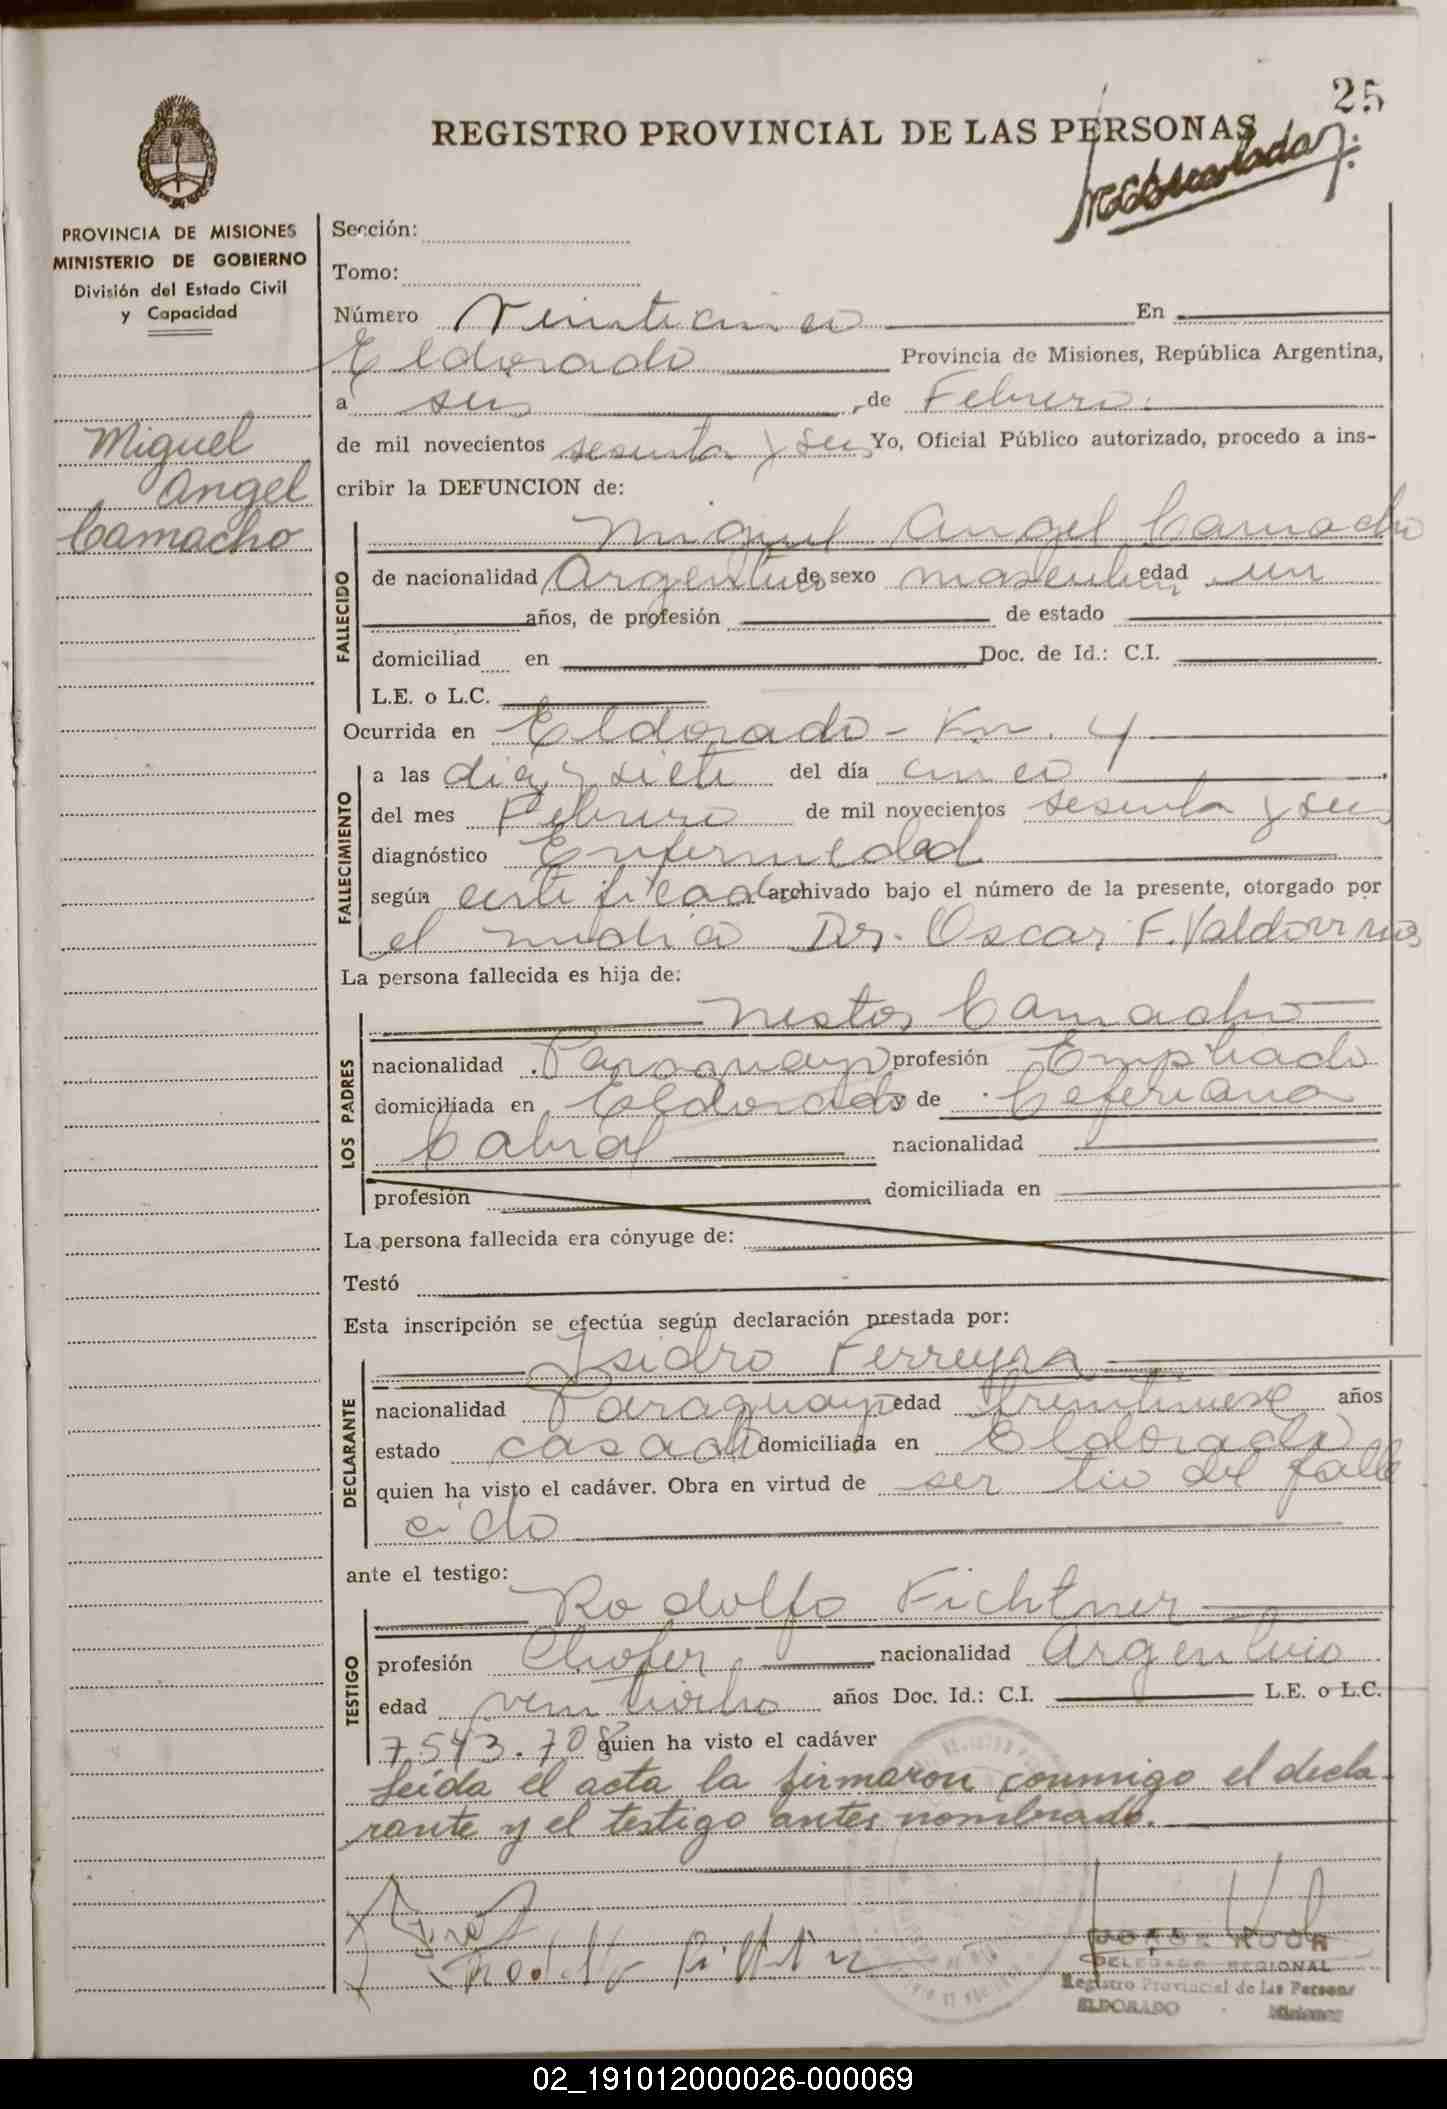 25
REGISTRO PROVINCIAL DE LAS PERSONAS
PROVINCIA DE MISIONES
MINISTERIO DE GOBIERNO
División del Estado Civil
y Capacidad
Miguel
Angel
Camacho
Sección:
Tomo:
Número Veinticinco En
Eldorado Provincia de Misiones, República Argentina,
a seis, de Febrero.
de mil novecientos sesenta y seis Yo, Oficial Público autorizado, procedo a ins-
cribir la DEFUNCION de:
FALLECIDO
Miguel Angel Camacho
de nacionalidad Argentino de sexo masculino edad un
años, de profesión de estado
domiciliad en Doc. de Id.: C.I.
L.E. o L.C.
Ocurrida en Eldorado - Km. 4
FALLECIMIENTO
a las diez y siete del día cinco
del mes Febrero de mil novecientos sesenta y seis
diagnóstico Enfermedad
según certificado archivado bajo el número de la presente, otorgado por
el médico Dr. Oscar F.
La persona fallecida es hija de:
LOS PADRES
Nestor Camacho
nacionalidad Paraguayo profesión Empleado
domiciliada en Eldorado y de Ceferiana
Cabral nacionalidad
profesión domiciliada en
La persona fallecida era cónyuge de:
Testó
Esta inscripción se efectúa según declaración prestada por:
DECLARANTE
Isidro Ferreyra
nacionalidad Paraguayo edad años
estado casado domiciliada en Eldorado
quien ha visto el cadáver. Obra en virtud de ser tio del falle
cido
ante el testigo:
TESTIGO
Rodolfo Fichtner
profesión Chofer nacionalidad Argentino
edad veintiocho años Doc. Id.: C.I. L.E. o L.C.
7543.708 quien ha visto el cadáver
Leída el acta la firmaron conmigo el decla-
rante y el testigo antes nombrado.
JORGE
DELEGADO REGIONAL
Registro Provincial de las Personas
ELDORADO Misiones
02_191012000026-000069